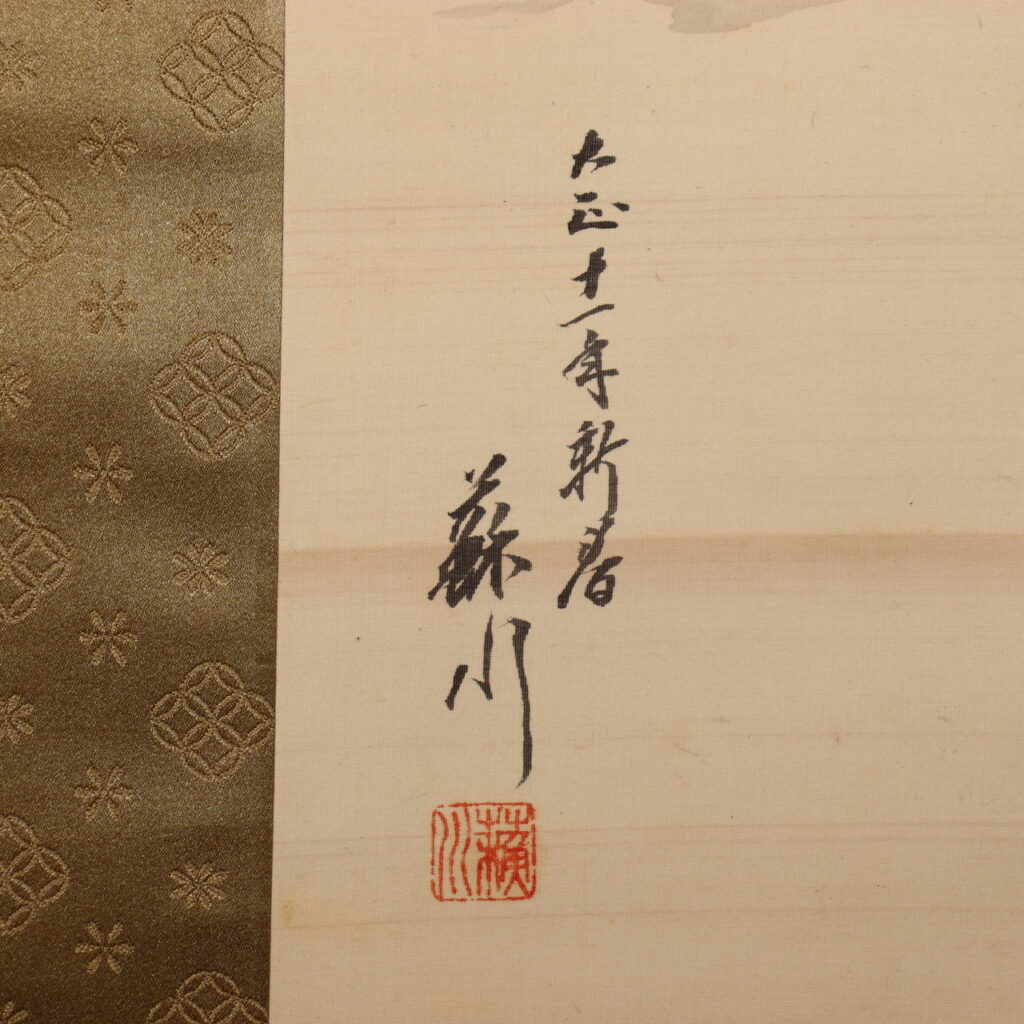 大正十一年新春
蘇川
蘓川